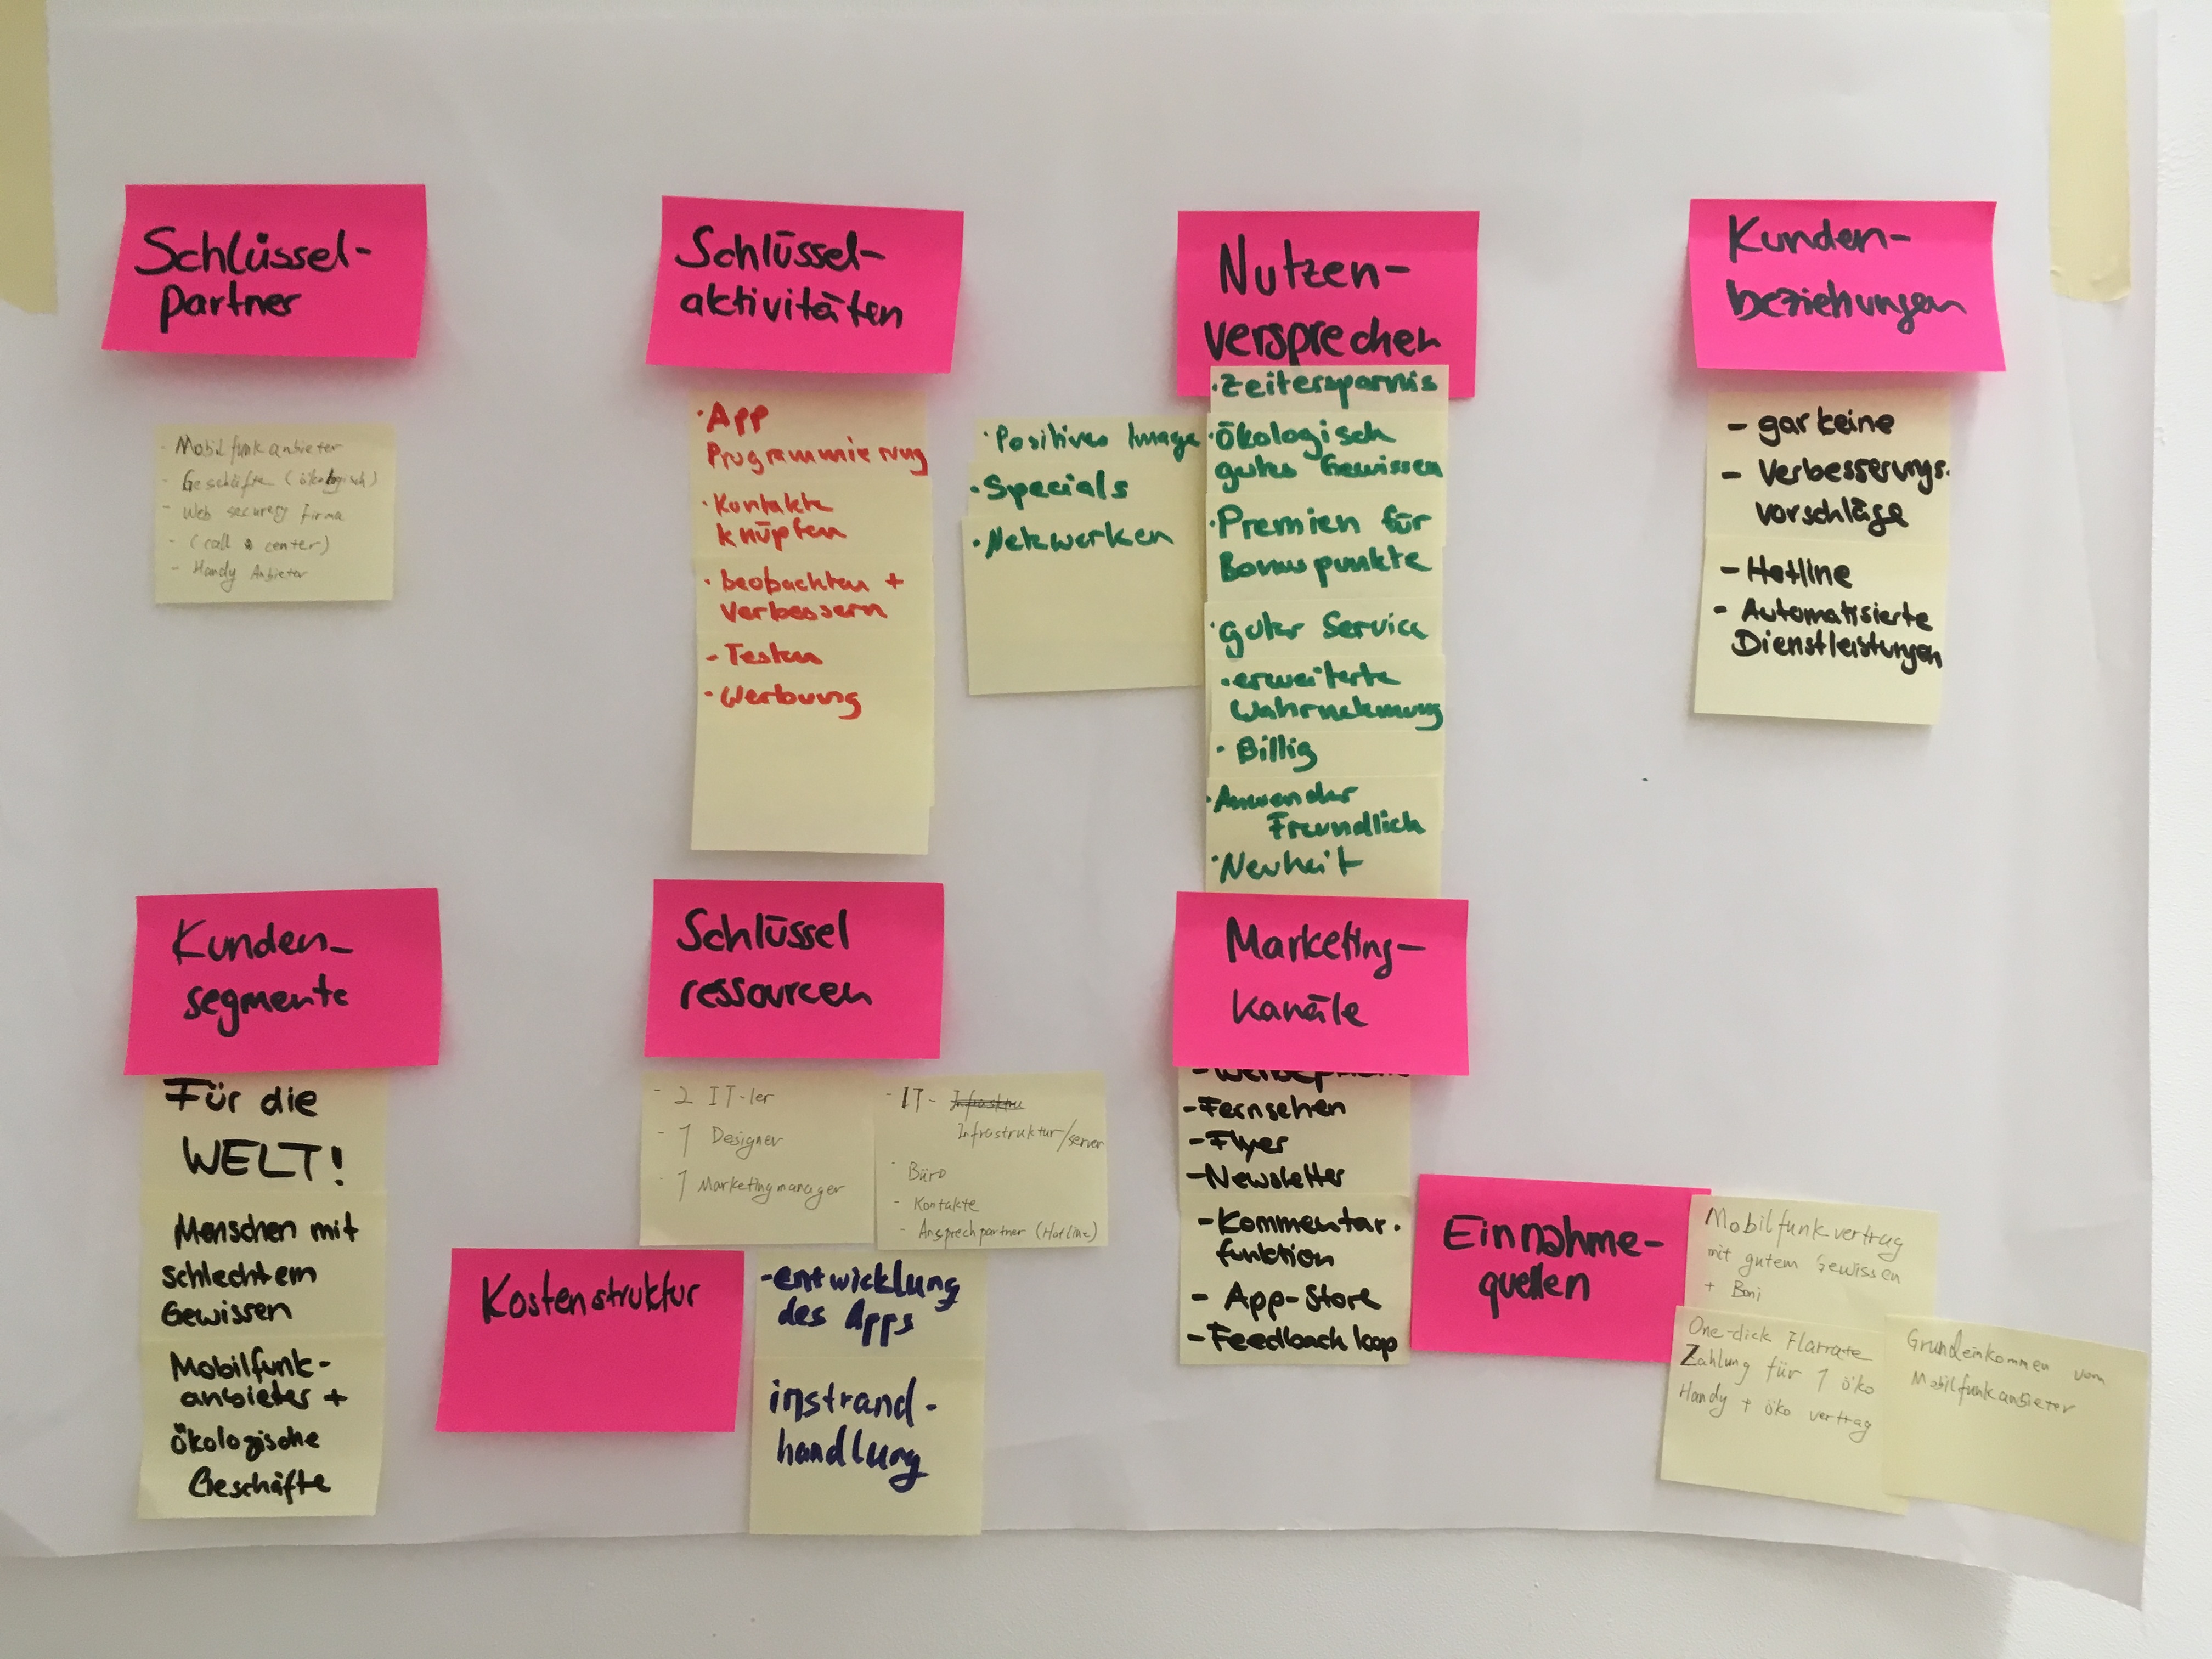 Schlüssel-
partner
- Mobilfunkanbieter
- Geschäfte (ökologisch)
- Web securety firma
- (call center)
- Handy Anbieter
Schlüssel-
aktivitäten
· App
Programmierung
· Kontakte
knüpfen
· beobachten +
verbessern
- Testen
· Werbung
Nutzen-
versprechen
· Zeitersparnis
· Ökologisch
gutes Gewissen
· Premien für
Bonuspunkte
· guter Service
· erweiterte
Wahrnehmung
· Billig
· Anwender
Freundlich
· Neuheit
· Positives Image
· Specials
· Netzwerken
Kunden-
beziehungen
- gar keine
- Verbesserungs-
vorschläge
- Hotline
- Automatisierte
Dienstleistungen
Kunden-
segmente
Für die
WELT!
Menschen mit
schlechtem
Gewissen
Mobilfunk-
anbieter +
ökologische
Geschäfte
Schlüssel
ressourcen
- 2 IT-ler
- 1 Designer
- 1 Marketingmanager
- IT-
Infrastruktur/server
- Büro
- Kontakte
- Ansprechpartner (Hotline)
Kostenstruktur
- entwicklung
des Apps
instrand-
handlung
Marketing-
kanäle
- Fernsehen
- Flyer
- Newsletter
- Kommentar-
funktion
- App-Store
- Feedback loop
Einnahme-
quellen
Mobilfunkvertrag
mit gutem Gewissen
+ Boni
One-click Flarrate
Zahlung für 1 öko
Handy + öko vertrag
Grundeinkommen vom
Mobilfunkanbieter